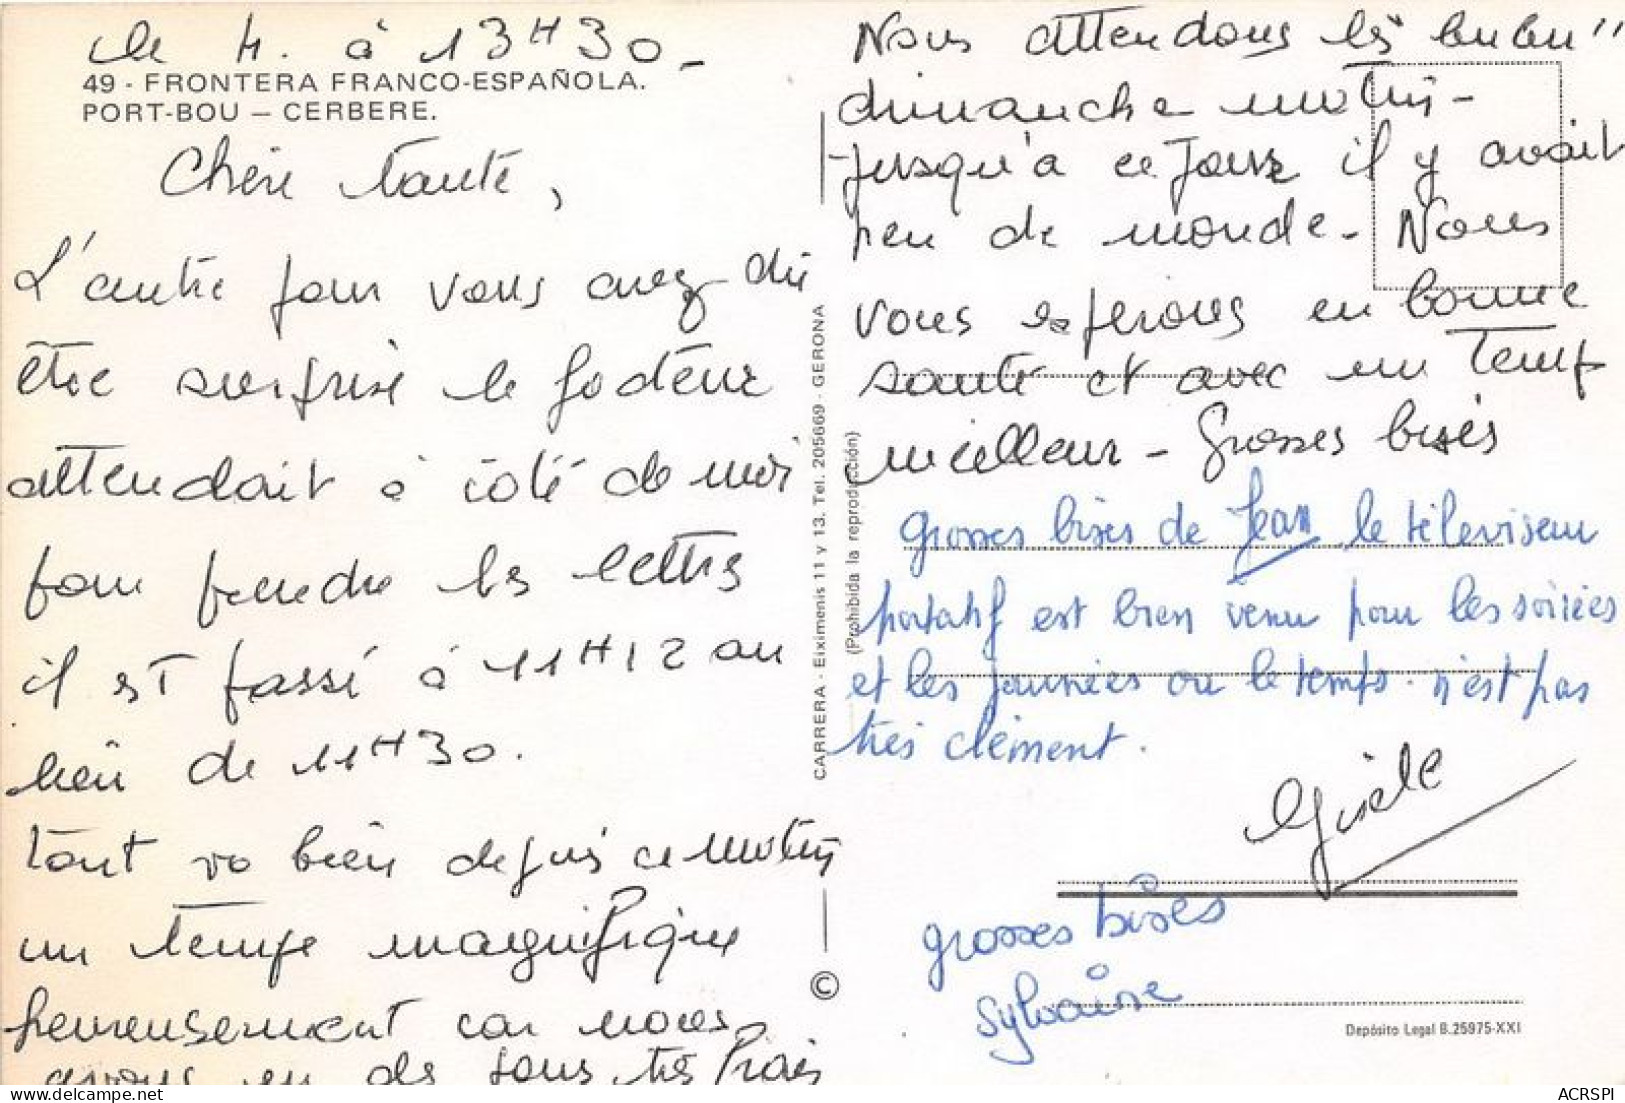 le 4. à 13H30_
49 - FRONTERA FRANCO-ESPAÑOLA.
PORT-BOU — CERBERE.
Chère tante,
L'autre jour vous avez dû
être surprise le facteur
attendait à côté de moi
pour prendre les lettres
il est passé à 11H12 au
lieu de 11H30.
tout va bien depuis ce matin
un temps magnifique
heureusement car nous
avons eu des jours très frais
CARRERA - Eiximenis 11 y 13. Tel. 205669 - GERONA
(Prohibida la reproducción)
©
Nous attendons les "bubu"
dimanche matin -
jusqu'à ce jour il y avait
peu de monde - Nous
vous espérons en bonne
santé et avec un temps
meilleur - Grosses bises
Grosses bises de Jean le téléviseur
portatif est bien venu pour les soirées
et les journées ou le temps n'est pas
très clément.
Gisèle
grosses bises
Sylvaine
Depósito Legal B.25975-XXI
ACRSPI